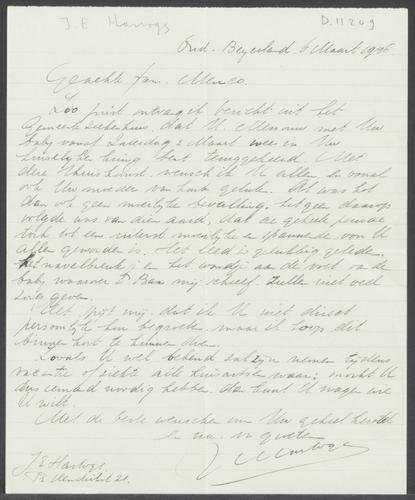 J. E. Hartogs
D.11209
Oud-Beyerland, 6 Maart 1936.
Geachte Fam. Menco.
Zoo juist ontvang ik bericht uit het
Gemeente Ziekenhuis, dat U, Mevrouw met Uw
baby vanaf Zaterdag 2 Maart weer in Uw
huiselijke kring bent teruggekeerd. Met
deze thuiskomst wensch ik U allen, en vooral
ook Uw moeder van harte geluk. Al was het
dan ook geen moeilijke bevalling, hetgeen daarop
volgde was van dien aard, dat de geheele periode
toch tot een uiterst moeilijke en spannende voor U
allen geworden is. Het leed is gelukkig geleden.
Het navelbreukje en het wondje aan de voet van de
baby waarover Dr Ban mij schreef zullen niet veel
zorg geven.
Het spijt mij, dat ik U niet direct
persoonlijk kan begroeten, maar ik hoop dit
binnenkort te kunnen doen.
Zooals U wel bekend zal zijn nemen tijdens
vacantie of ziekte alle huisartsen waar; mocht U
dus iemand noodig hebben, dan kunt U vragen wie
U wilt.
Met de beste wenschen voor Uw geheel herstel
en m. vr. groeten
J E Hartogs